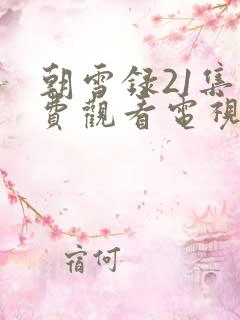 朝雪录21集
費觀看電視
宿何